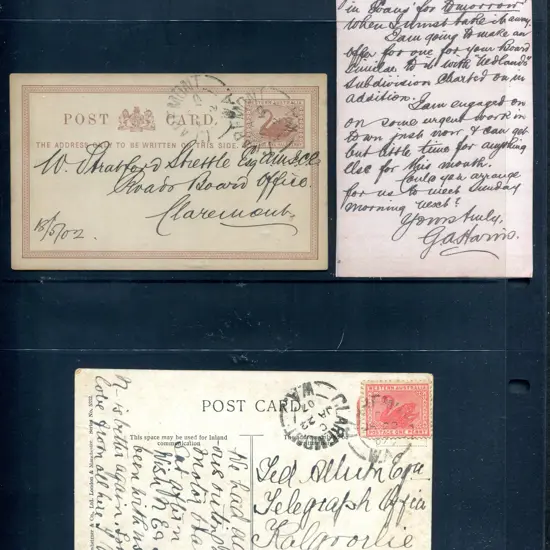 POST CARD.
WESTERN AUSTRALIA
THE ADDRESS ONLY TO BE WRITTEN ON THIS SIDE.
W. Stratford Strettle Esq
Roads Board Office.
Claremont.
18/5/02
CLAREMONT
W.A.
for tomorrow
when I must take it away.
I am going to make an
offer for one for your Board
similar to lith "Nedlands"
Subdivision Charted on in
addition.
I am engaged on
on some urgent work in
town just now & can get
but little time for anything
else for this month.
Could you arrange
for us to meet Sunday
morning next?
Yours truly,
G A Harris.
POST CARD
This space may be used for Inland
communication
WESTERN AUSTRALIA
POSTAGE ONE PENNY
CLAREMONT
JA 22
W.A.
Ted Allum Esq
Telegraph Office
Kalgoorlie
We had
one outing
motor
is better again.
been with us
love from all here
London & Manchester. Series No.